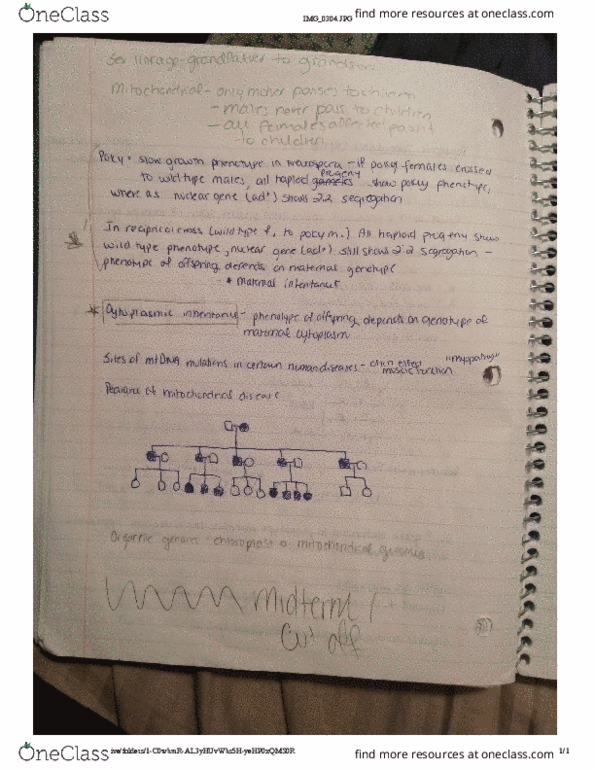 OneClass
IMG_0304.JPG
find more resources at oneclass.com
find more resources at oneclass.com
Sex linkage - grandfather to grandson
Mitochondrical - only mother passes to children
- males never pass to children
- all females affected pass it
to children
Poky = slow growth phenotype in neurospora - if poky females crossed
progeny
to wild type males, all haploid gametes show poky phenotype,
where as nuclear gene (ad+) shows 2:2 segregation
In reciprical cross (wild type f. to poky m.) All haploid progeny show
wild type phenotype, nuclear gene (ad+) still shows 2:2 segregation -
phenotype of offspring depends on maternal genotype
* Maternal inheritance
* Cytoplasmic inheritance - phenotype of offspring depends on genotype of
maternal cytoplasm
Sites of mtDNA mutations in certain human diseases - often effect
muscle function
Pedigree of mitochondrial disease
Organelle genomes - chloroplast + mitochondrial genomes
Midterm 1
Cut off
OneClass
1/1
find more resources at oneclass.com
find more resources at oneclass.com